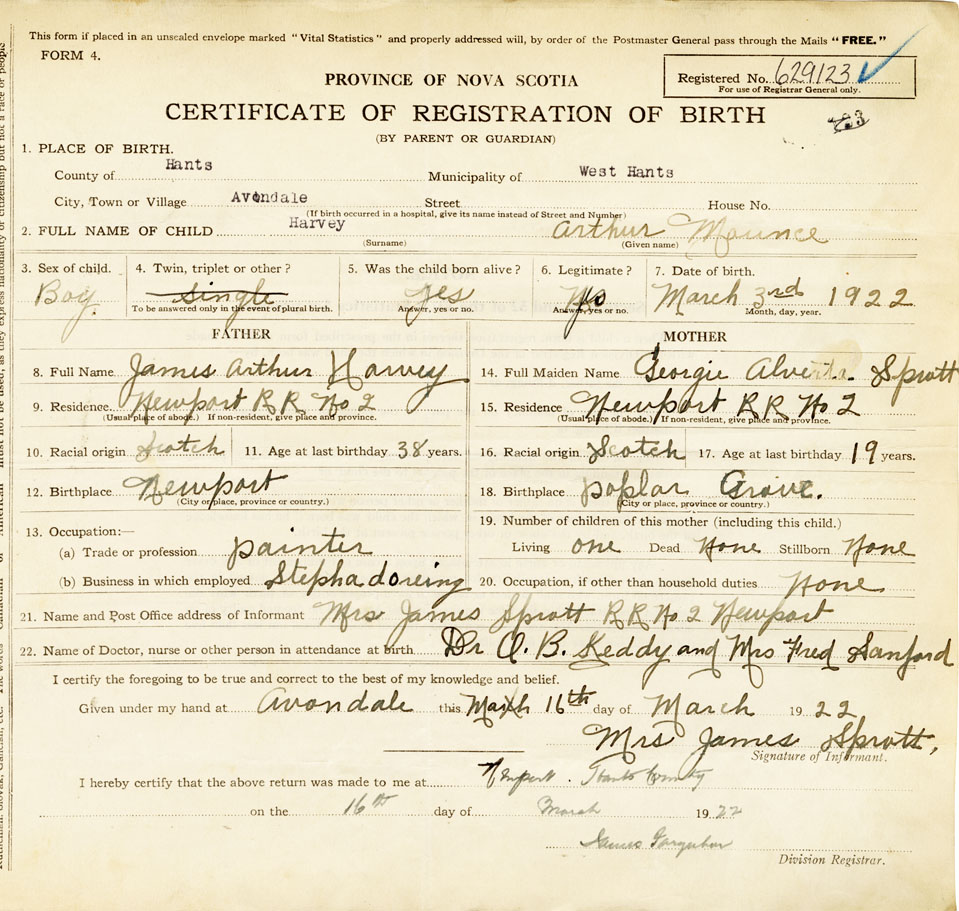 This form if placed in an unsealed envelope marked "Vital Statistics" and properly addressed will, by order of the Postmaster General pass through the Mails "FREE."
FORM 4.
PROVINCE OF NOVA SCOTIA
Registered No. 629123
For use of Registrar General only.
CERTIFICATE OF REGISTRATION OF BIRTH
(BY PARENT OR GUARDIAN)
1. PLACE OF BIRTH.
County of Hants Municipality of West Hants
City, Town or Village Avondale Street House No.
(If birth occurred in a hospital, give its name instead of Street and Number)
2. FULL NAME OF CHILD Harvey Arthur Maurice
(Surname) (Given name)
3. Sex of child. 4. Twin, triplet or other? 5. Was the child born alive? 6. Legitimate? 7. Date of birth.
Boy. single yes No March 3rd 1922
To be answered only in the event of plural birth. Answer, yes or no. Answer, yes or no. Month, day, year.
FATHER MOTHER
8. Full Name James Arthur Harvey 14. Full Maiden Name Georgie Alverta Sprott
9. Residence. Newport R R No 2 15. Residence Newport R R No 2
(Usual place of abode.) If non-resident, give place and province. (Usual place of abode.) If non-resident, give place and province.
10. Racial origin Scotch 11. Age at last birthday 38 years. 16. Racial origin Scotch 17. Age at last birthday 19 years.
12. Birthplace Newport 18. Birthplace poplar Grove.
(City or place, province or country.) (City or place, province or country.)
13. Occupation:— 19. Number of children of this mother (including this child.)
(a) Trade or profession painter Living one Dead None Stillborn None
(b) Business in which employed Stephadoreing 20. Occupation, if other than household duties None
21. Name and Post Office address of Informant Mrs James Sprott R R No 2 Newport
22. Name of Doctor, nurse or other person in attendance at birth Dr O. B. Keddy and Mrs Fred Sanford
I certify the foregoing to be true and correct to the best of my knowledge and belief.
Given under my hand at Avondale this March 16th day of March 1922
Mrs James Sprott,
Signature of Informant.
I hereby certify that the above return was made to me at Newport. Hants County
on the 16th day of March 1922
James Farquhar
Division Registrar.